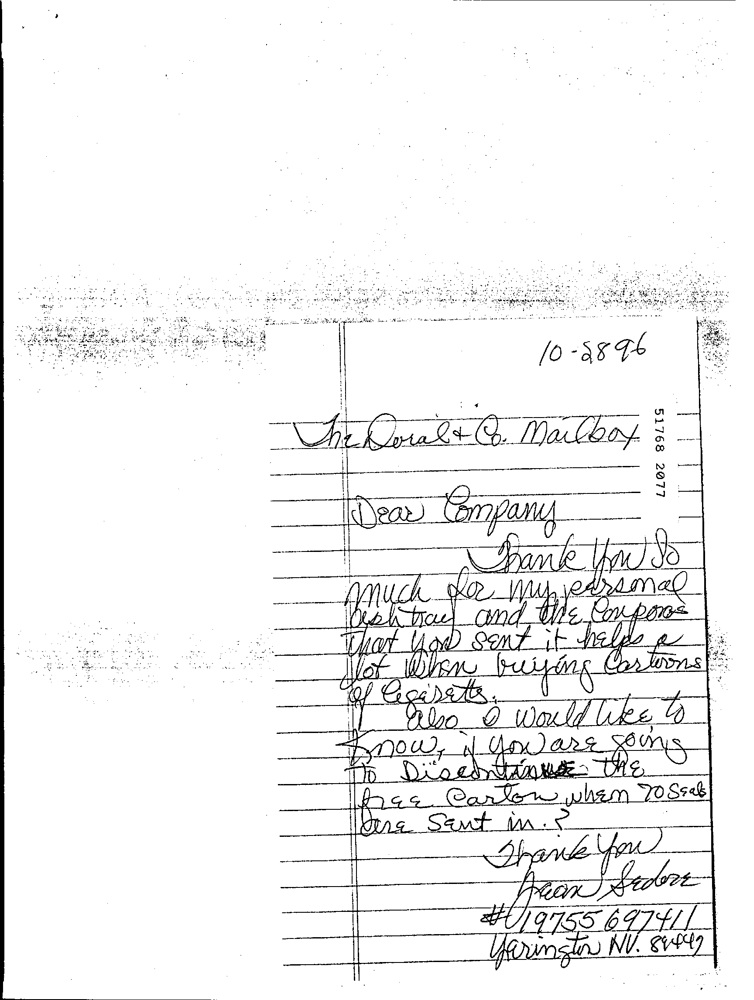 10-2896
The Doral & Co. Mailbox
51768 2077
Dear Company
Thank You So
much for my personal
ashtray and the Coupons
that you sent it helps a
lot when buying Cartoons
of Cegaretts.
also I would like to
know, if you are going
to Discontinue the
free Carton when 70 Seals
are Sent in.?
Thank You
Jean Sedore
# 19755697411
Yerington NV. 89447